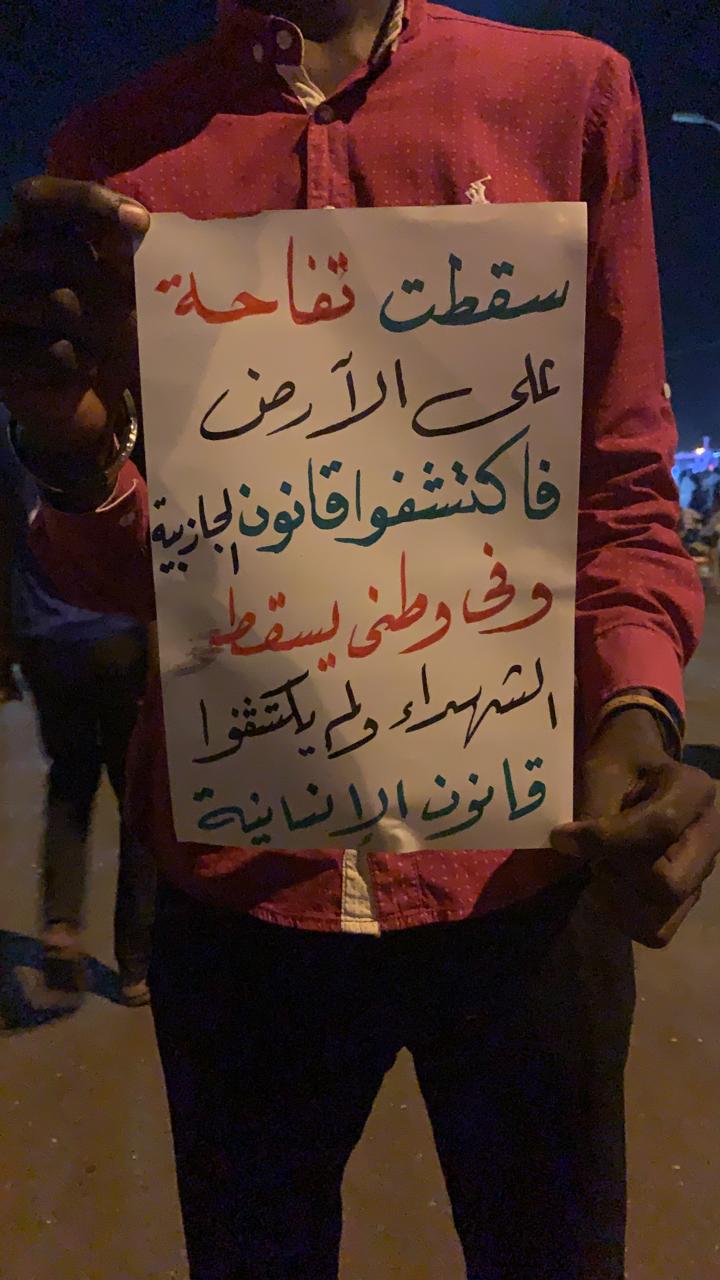 سقطت تفاحة
على الآرض
فاكتشفوا قانون الجازبية
وفى وطنى يسقط
الشهداء ولم يكتشفوا
قانون الإنسانية